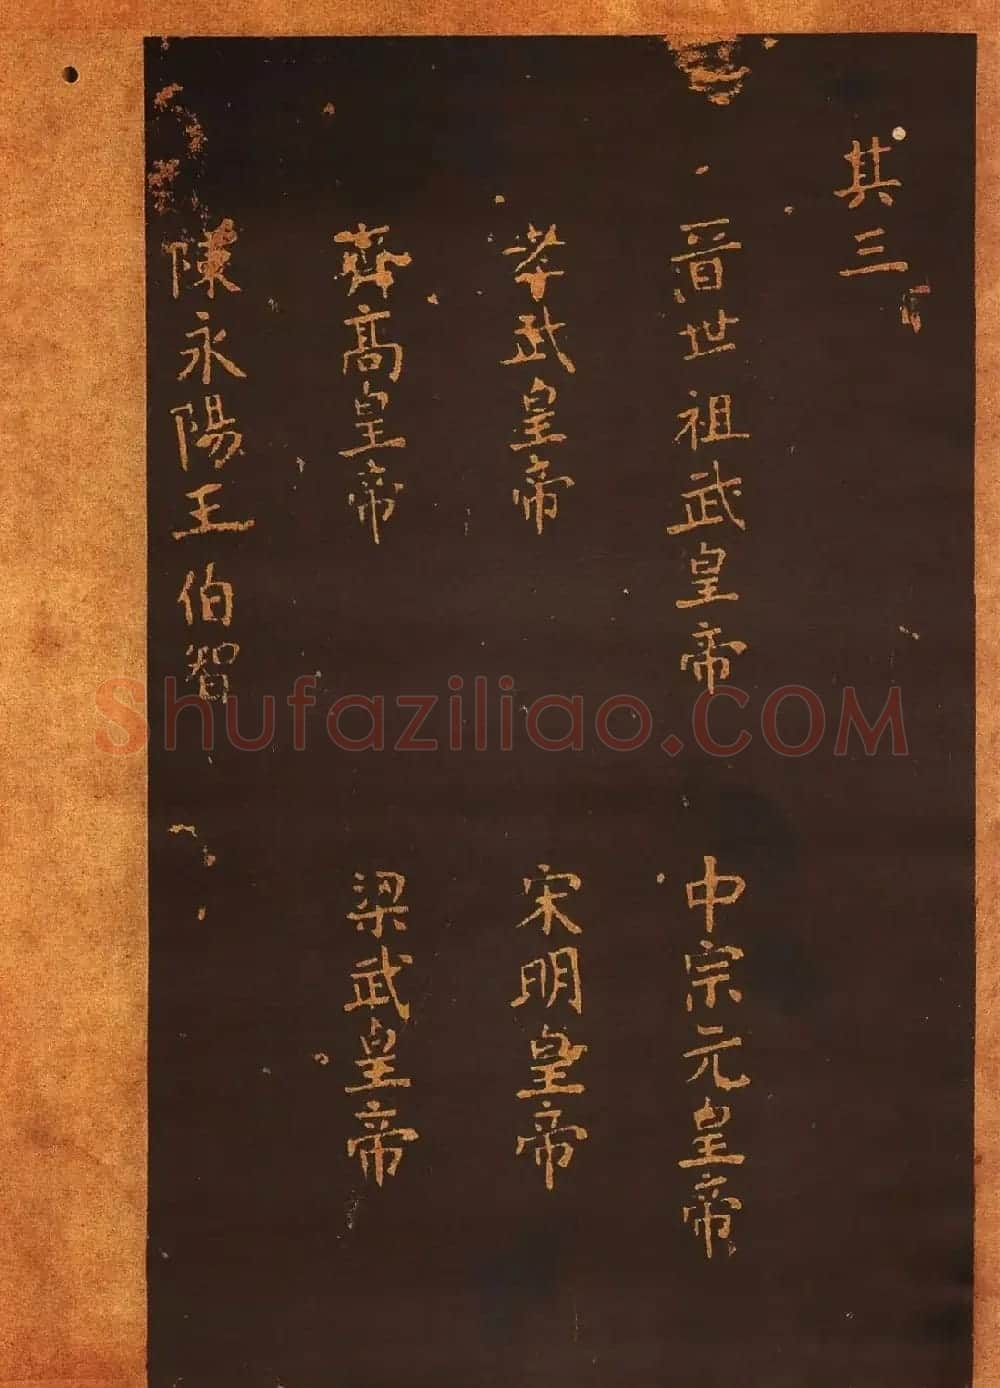 其三
晉世祖武皇帝
中宗元皇帝
孝武皇帝
宋明皇帝
齊高皇帝
梁武皇帝
陳永陽王伯智
Shufaziliao.COM